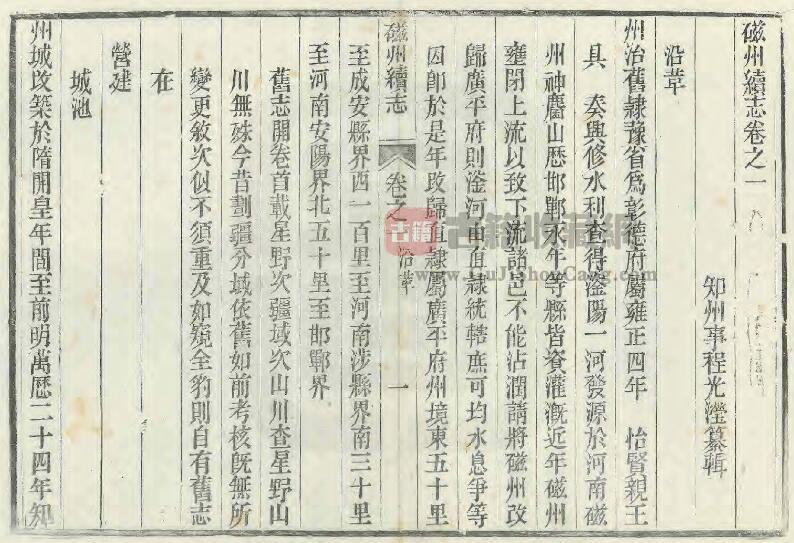 磁州續志卷之一
知州事程光瀅纂輯
沿革
州治舊隸豫省為彰德府屬雍正四年 怡賢親王
具 奏興修水利查得滏陽一河發源於河南磁
州神麕山歷邯鄲永年等縣皆資灌溉近年磁州
壅閉上流以致下流諸邑不能沾潤請將磁州改
歸廣平府則滏河由直隸統轄庶可均水息爭等
因即於是年改歸直隸屬廣平府州境東五十里
磁州續志 卷之一 沿革 一
至成安縣界西一百里至河南涉縣界南三十里
至河南安陽界北五十里至邯鄲界
舊志開卷首載星野次疆域次山川查星野山
川無殊今昔劃疆分域依舊如前考核既無所
變更敘次似不須重及如窺全豹則自有舊志
在
營建
城池
州城改築於隋開皇年間至前明萬歷二十四年知
古籍
古籍收藏網